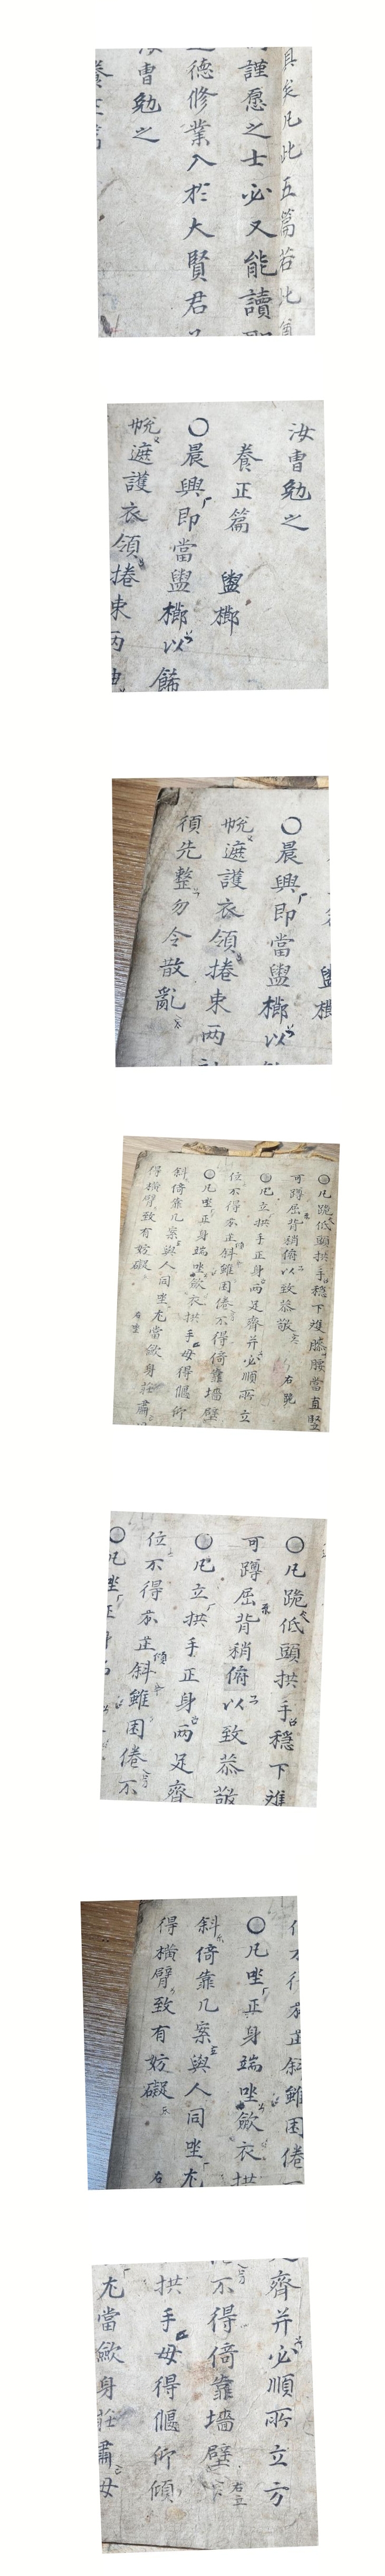 具矣凡此五篇若此
謹愿之士必又能讀
德修業入於大賢君
汝曹勉之
養正篇
汝曹勉之
養正篇 盥櫛
○晨興即當盥櫛以飾
帨遮護衣領捲束両袖
盥櫛
○晨興即當盥櫛以
帨遮護衣領捲束両
須先整勿令散亂
○凡跪低頭拱手穩下雙膝腰當直竪
可蹲屈背稍俯以致恭敬 右跪
○凡立拱手正身両足齊并必順所立
位不得歪斜雖困倦不得倚靠墻壁
○凡坐正身端坐歛衣拱手毋得偃仰
斜倚靠几案與人同坐尤當歛身莊肅
得橫臂致有妨礙 右坐
○凡跪低頭拱手穩下雙
可蹲屈背稍俯以致恭敬
○凡立拱手正身両足齊
位不得歪傾斜雖困倦不
○凡坐正身
歪斜雖困倦
○凡坐正身端坐歛衣拱
斜倚靠几案與人同坐尤
得橫臂致有妨礙 右
齊并必順所立方
不得倚靠墻壁 右立
拱手毋得偃仰傾
尤當歛身莊肅毋